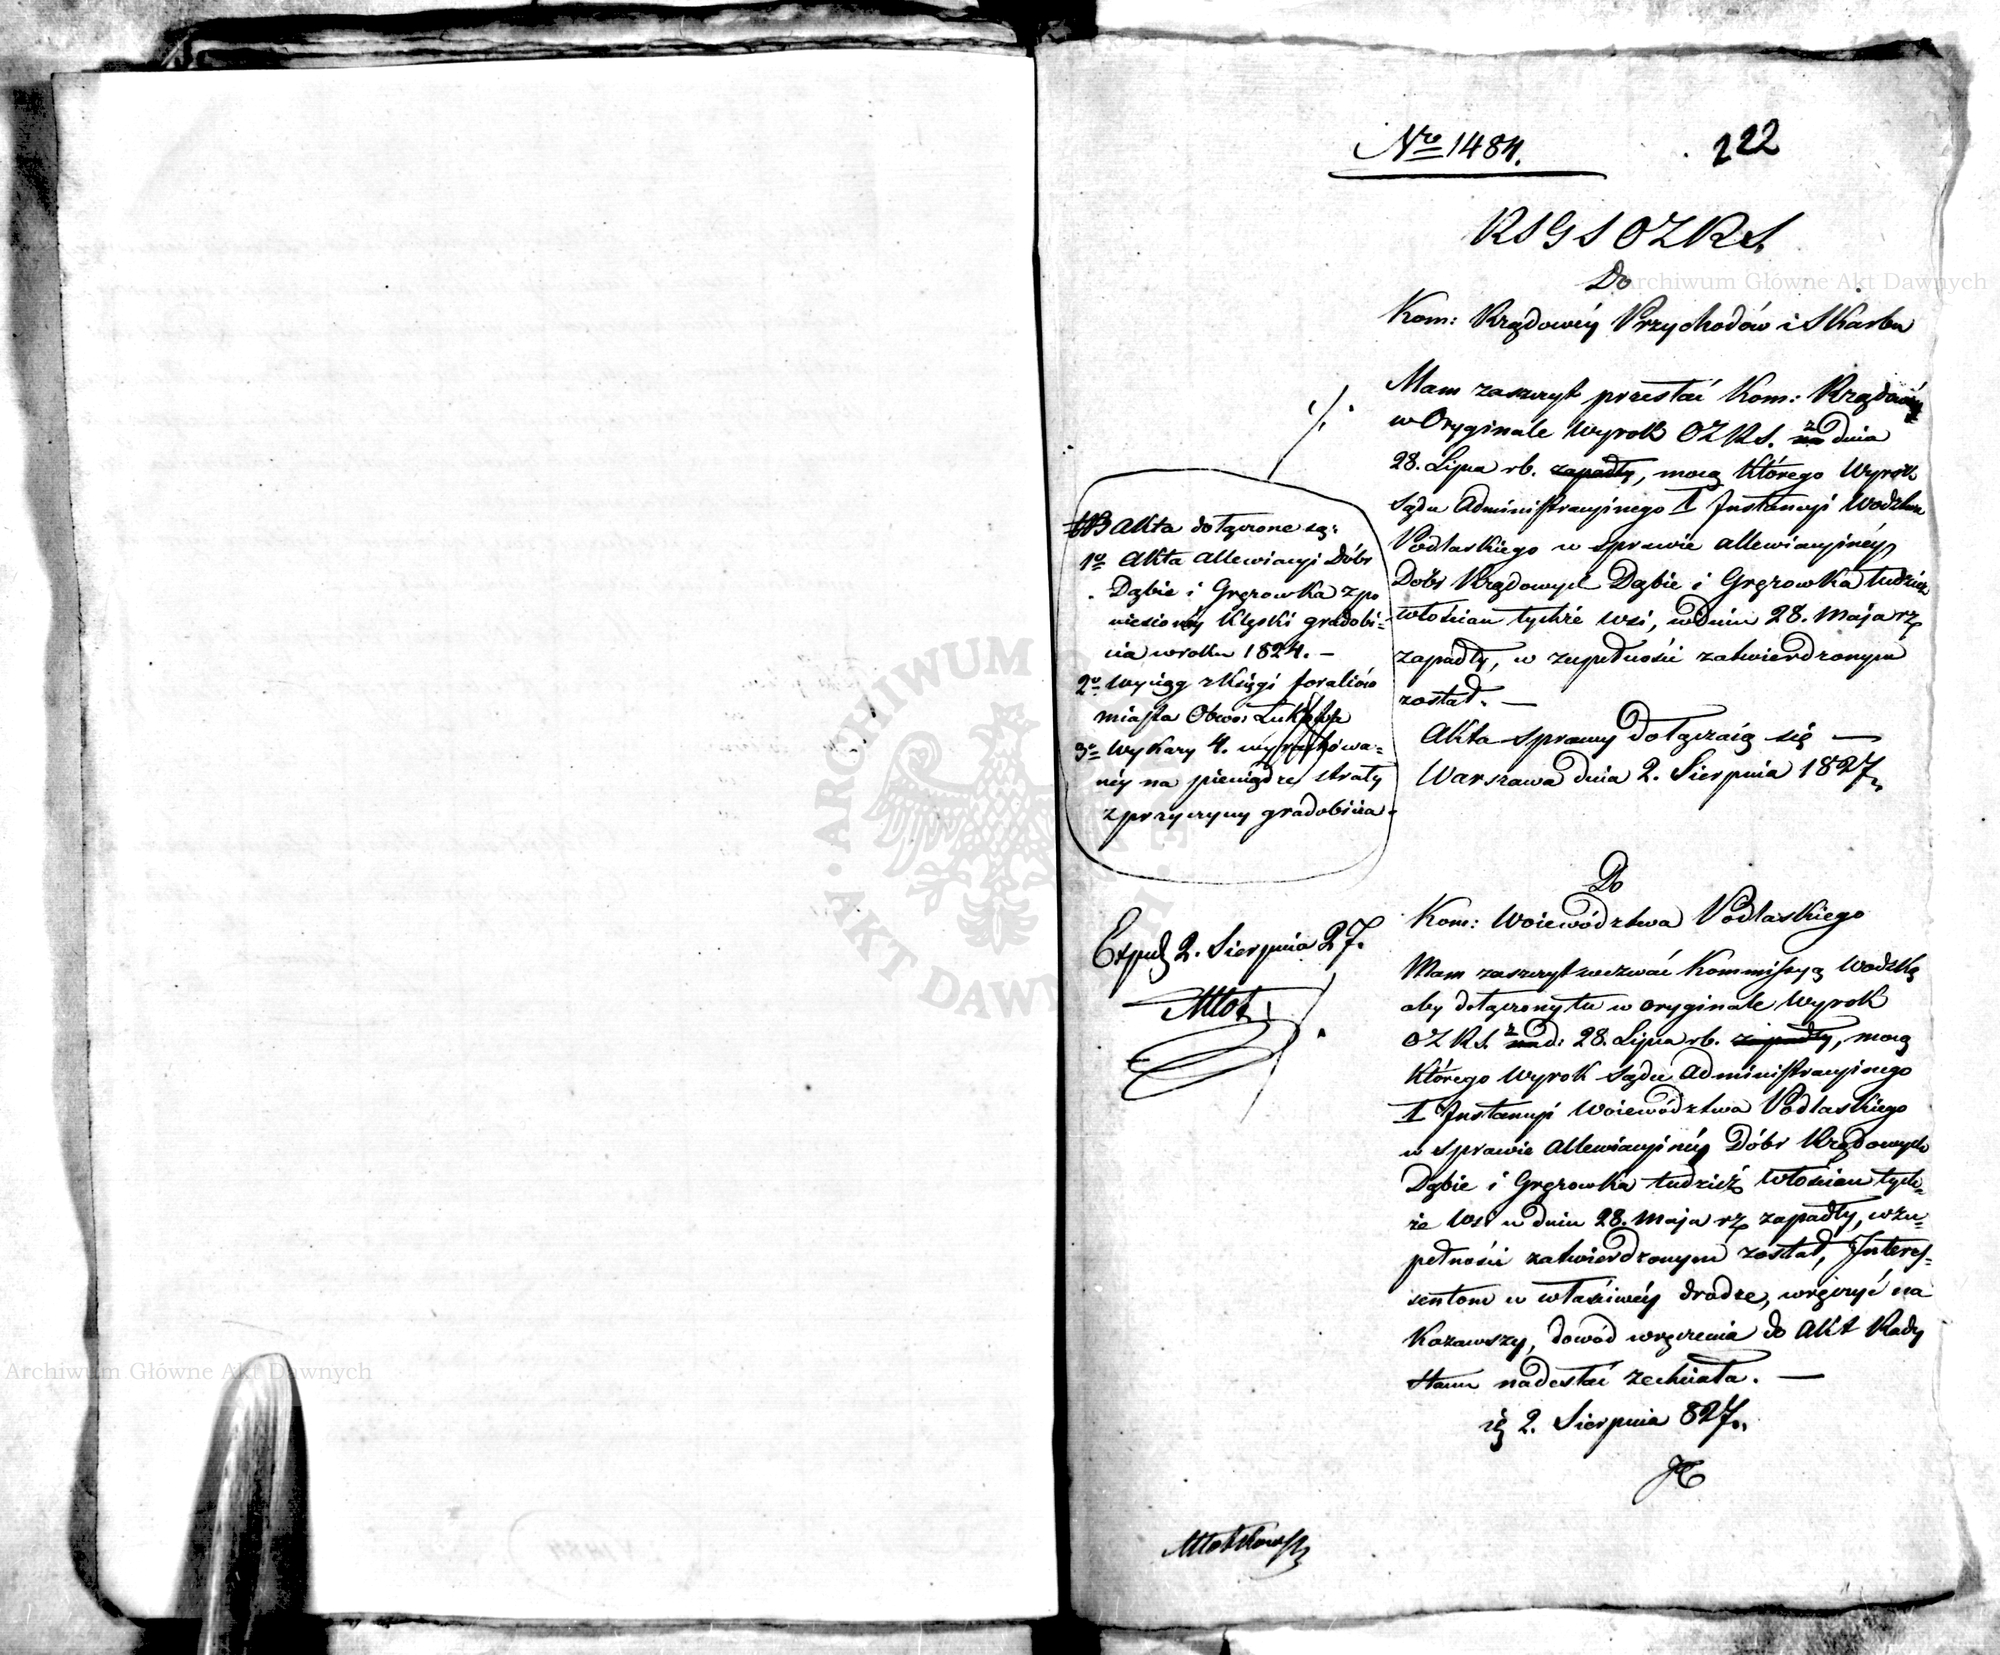 Nro 1484.
222
RSGSOZRS.
Do
Kom: Rządowéy Przychodów i Skarbu
Mam zaszczyt przesłać Kom: Rządowéy
w Oryginale Wyrok OZRS. na z dnia
28. Lipca rb. zapadły, mocą którego Wyrok
Sądu Administracyinego I Instancyi Wodztwa
Podlaskiego w sprawie allewiacyinéy
Dóbr Rządowych Dąbie i Gręzowka tudzież
włościan tychże wsi, w dniu 28. Maja rz
zapadły, w zupełności zatwierdzonym
został. —
Akta sprawy dołączaią się —
Warszawa dnia 2. Sierpnia 1827
NB Akta dołączone są:
1o Akta Allewiacyi Dóbr
Dąbie i Gręzowka z po
niesionéy klęski gradobi-
cia w roku 1824. —
2o Wyciąg z Księgi foraliów
miasta Obwo: Łukowa
3o Wykazy 4. wyrachowa-
néy na pieniądze straty
z przyczyny gradobicia.
Do
Kom: Woiewództwa Podlaskiego
Mam zaszczyt wezwać Kommissyą Wodzką
aby dołączony tu w oryginale Wyrok
OZRS. na z d: 28. Lipca rb. zapadły, mocą
którego Wyrok Sądu Administracyinego
I Instancyi Woiewództwa Podlaskiego
w sprawie Allewiacyinéy Dóbr Rządowych
Dąbie i Gręzowka tudzież Włościan tych-
że Wsi w dniu 28. Maja rz zapadły, w zu-
pełności zatwierdzonym został, Interes-
sentom w właściwéy drodze, wręczyć na
kazawszy, dowód wręczenia do Akt Rady
Stanu nadesłać zechciała. —
2. Sierpnia 827.
Exped 2. Sierpnia 27.
Młot
Młotkowski
Archiwum Główne Akt Dawnych
Archiwum Główne Akt Dawnych